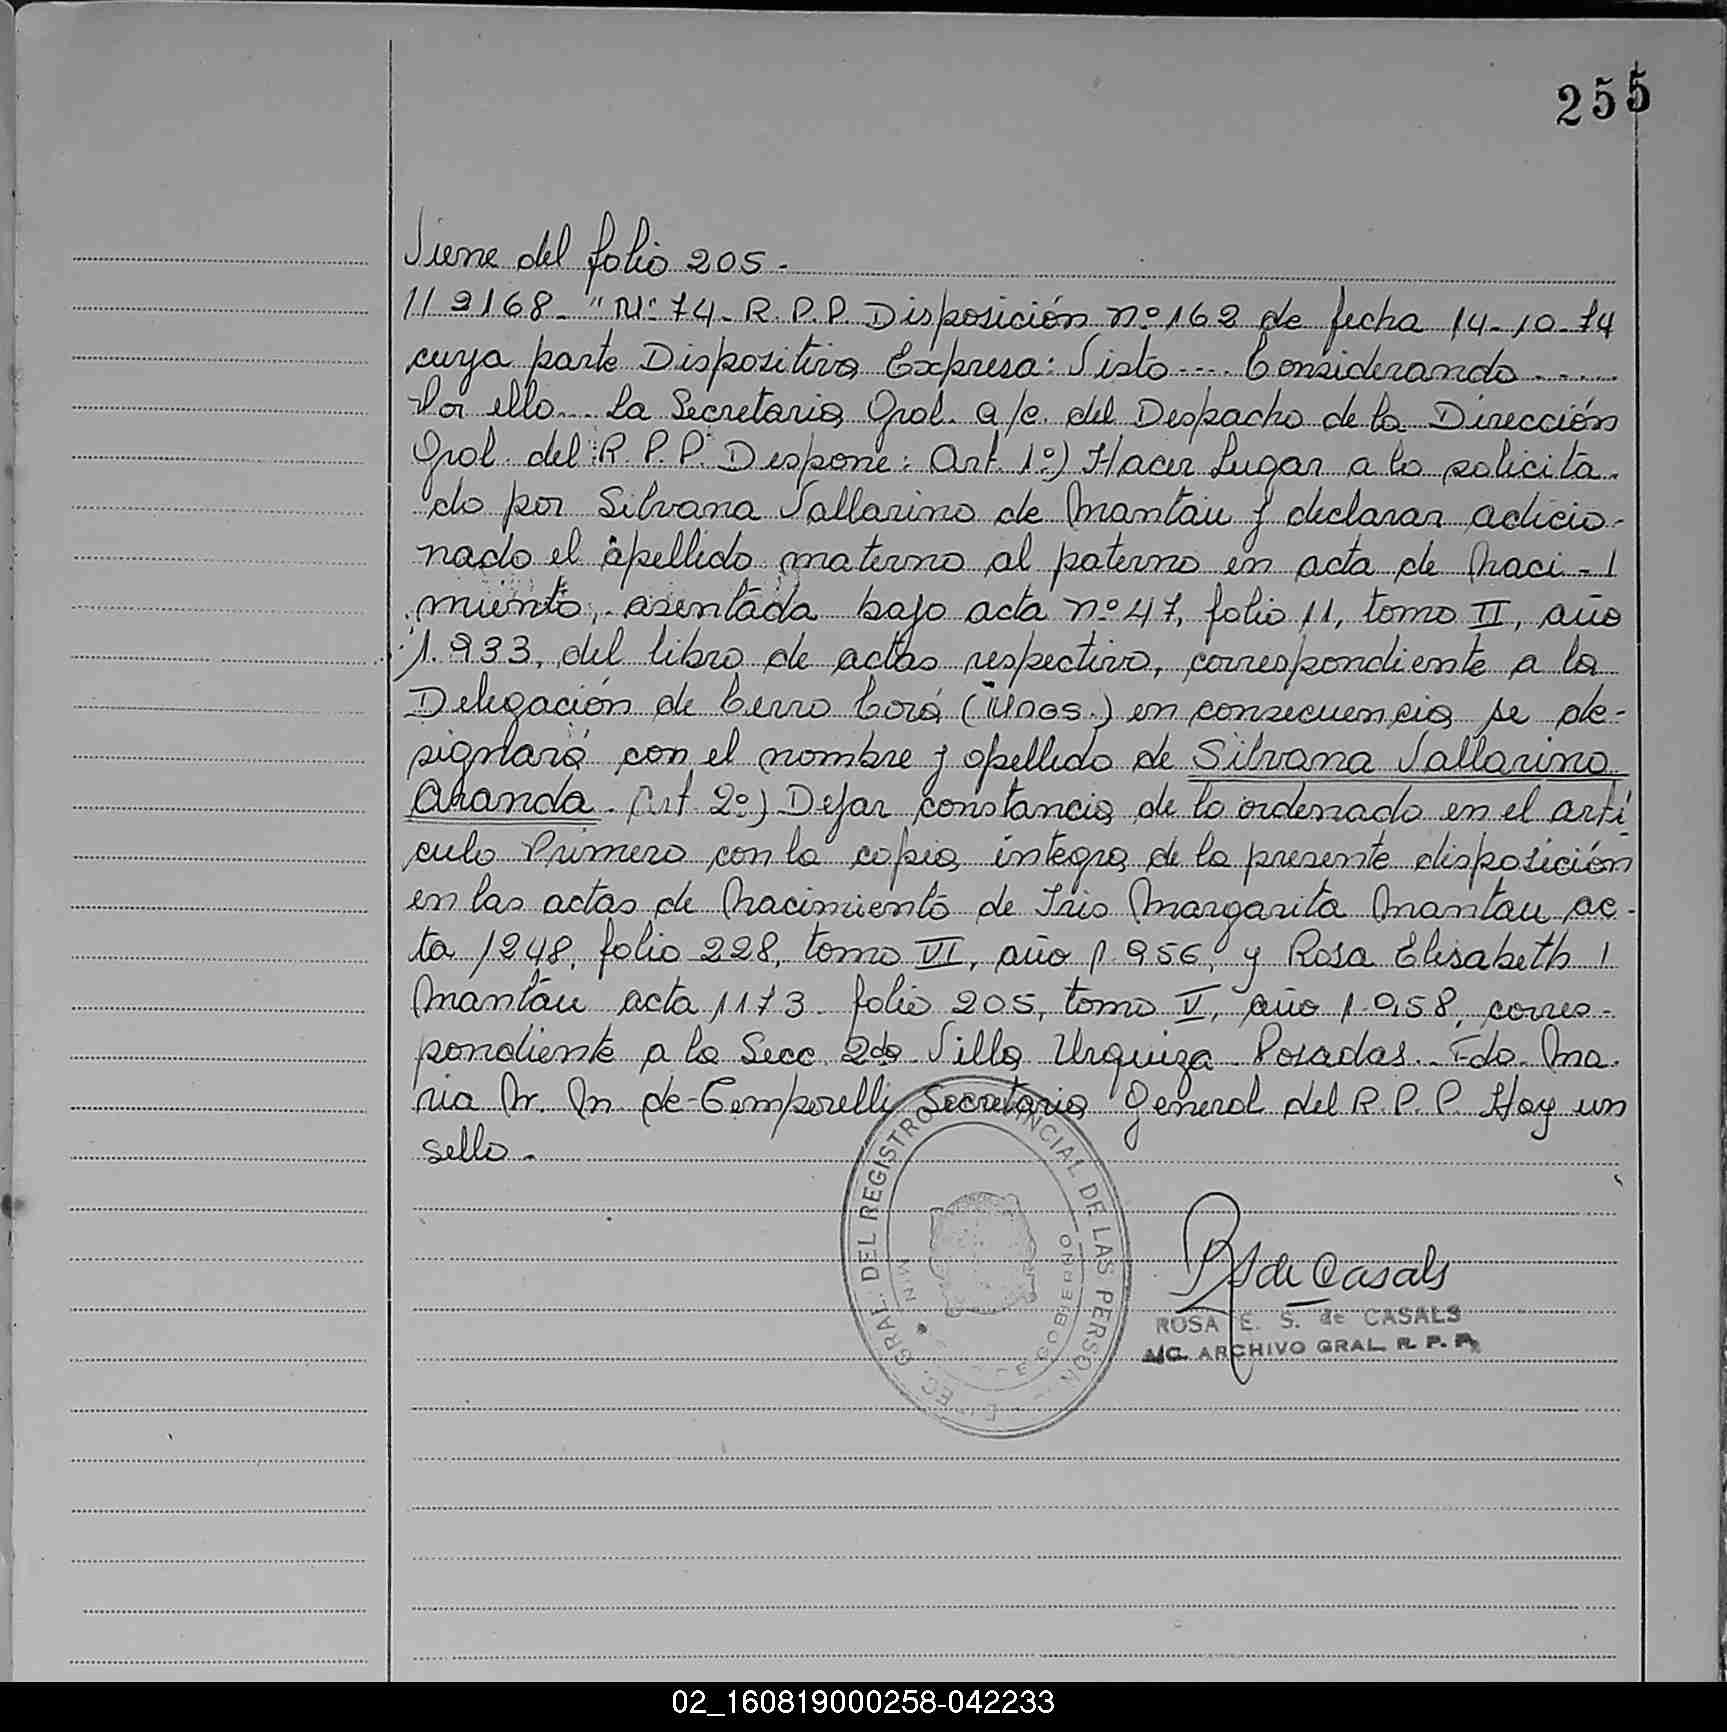 255
Viene del folio 205.-
119168- "M"- 74- R.P.P. Disposición nº 162 de fecha 14-10-74
cuya parte Dispositiva Expresa: Visto.... Considerando.....
Por ello... La Secretaria Gral. a/c. del Despacho de la Dirección
Gral. del R.P.P. Dispone: Art. 1º) Hacer Lugar a lo solicita-
do por Silvana Vallarino de Mantau y declarar adicio-
nado el apellido materno al paterno en acta de Naci-
miento, asentada bajo acta nº 47, folio 11, tomo II, año
1.933, del libro de actas respectivo, correspondiente a la
Delegación de Cerro Corá (Mnes.) en consecuencia se de-
signará con el nombre y apellido de Silvana Vallarino
Aranda. Art. 2º) Dejar constancia de lo ordenado en el artí-
culo Primero con la copia integra de la presente disposición
en las actas de Nacimiento de Iris Margarita Mantau ac-
ta 1248, folio 228, tomo VI, año 1.956, y Rosa Elisabeth
Mantau acta 1173- folio 205, tomo V, año 1.958, corres-
pondiente a la Secc. 2da Villa Urquiza Posadas.. Fdo. Ma-
ria N. M. de Comporelli Secretaria General del R.P.P. Hay un
sello.-
GRAL. DEL REGISTRO PROVINCIAL DE LAS PERSON
MIN DE GOBIERNO
R S de Casals
ROSA E. S. de CASALS
A/C. ARCHIVO GRAL. R. P. P.
02_160819000258-042233